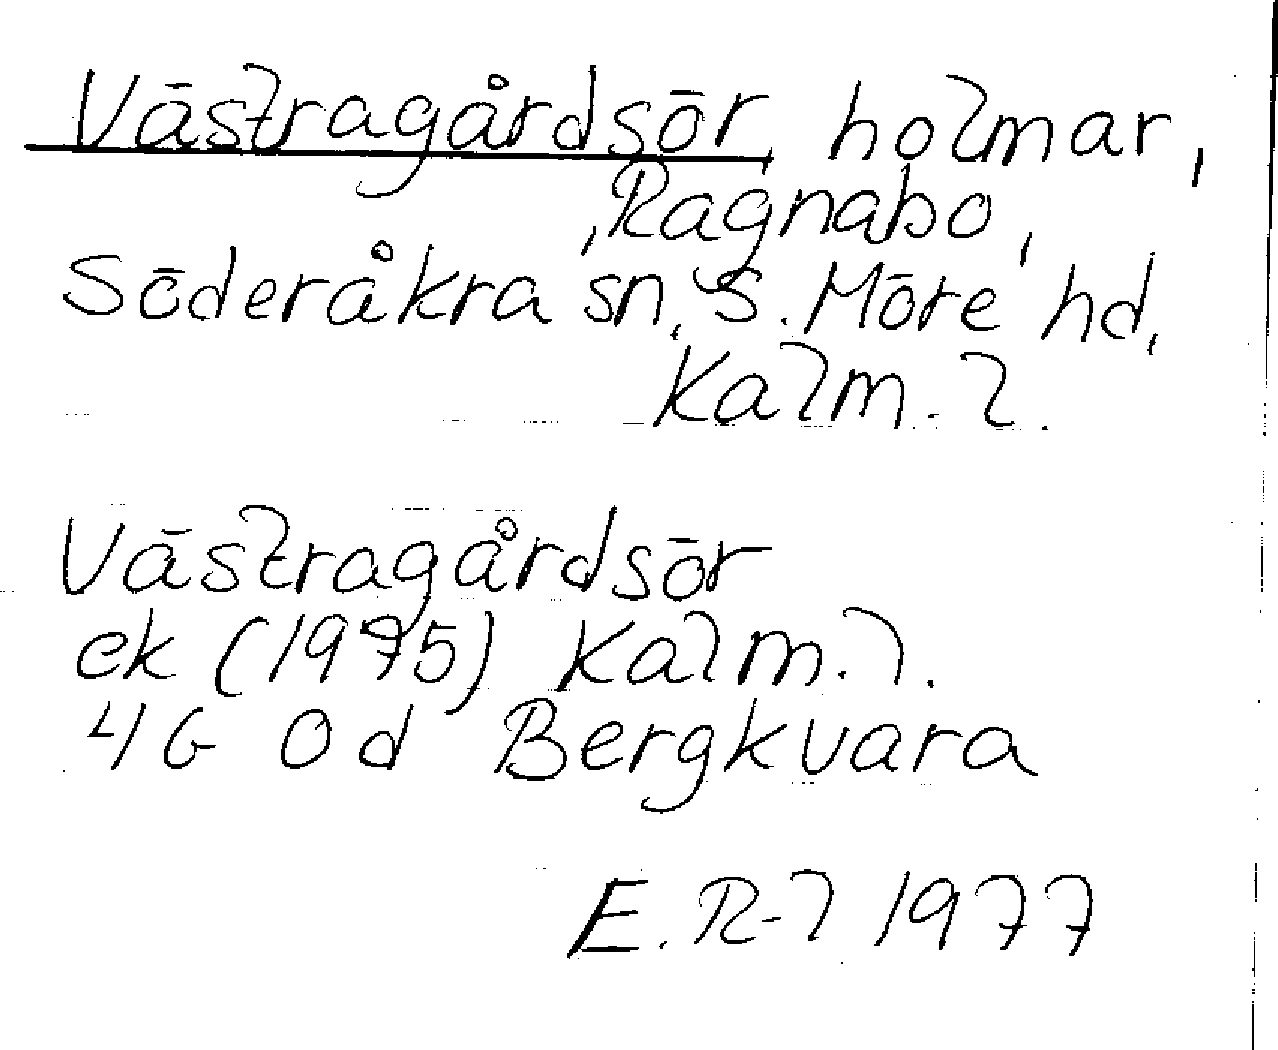 Västragårdsör, holmar,
, Ragnabo,
Söderåkra sn, S. Möre hd,
Kalm. l.
Västragårdsör
ek (1975) Kalm. l.
4G 0d Bergkvara
E. R-l 1977